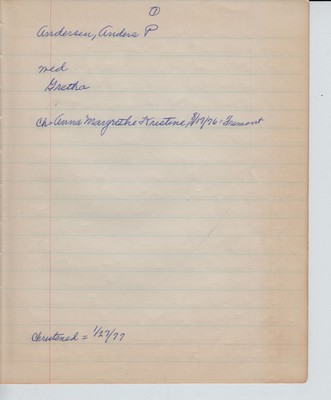 ①
Andersen, Anders P
wed
Gretha
Ch. Anna Margrethe Kristine, 8/17/76 - Fremont
Christened = 1/27/77